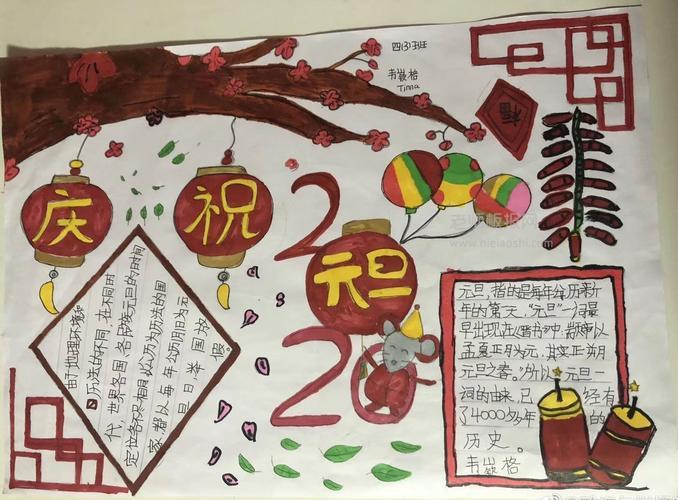 四(3)班
韦燚格
Tinna
福
庆
祝
2
元旦
2
老师板报网
www.nieiaoshi.com
由于地理环境和
历法的不同,在不同时
代,世界各国、各民族元旦的时间
定位各不相同
家都以每年公历1月1日为元
旦日举国放
假。
元旦,指的是每年公历新
年的第一天,“元旦”一词最
早出现在《晋书》中,
孟夏正月为元,其实正朔
元旦之春。”所以,元旦一
词的由来,已 经有
了4000多年 的
历史。
韦燚格